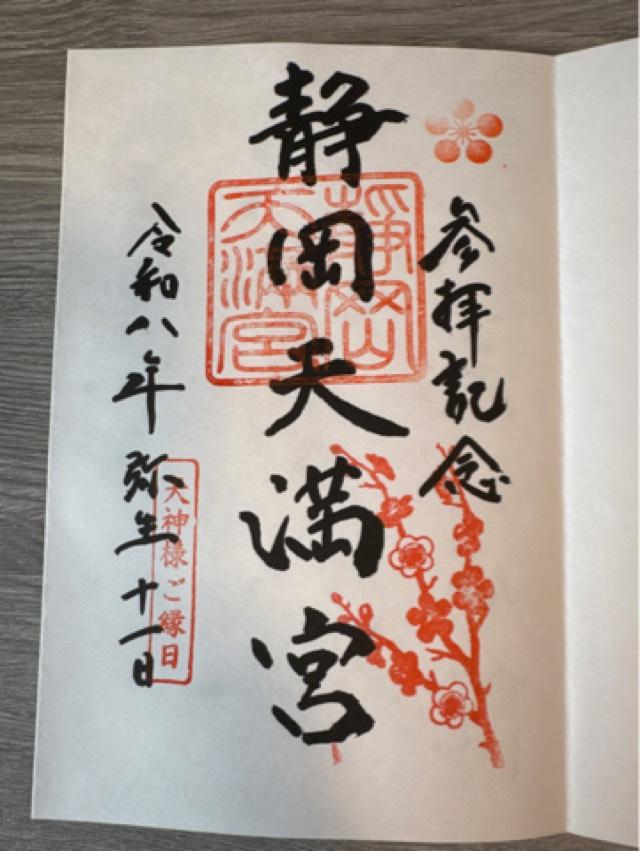 参拝記念
静岡天満宮
静岡
天満宮
令和八年 弥生十一日
天神様ご縁日